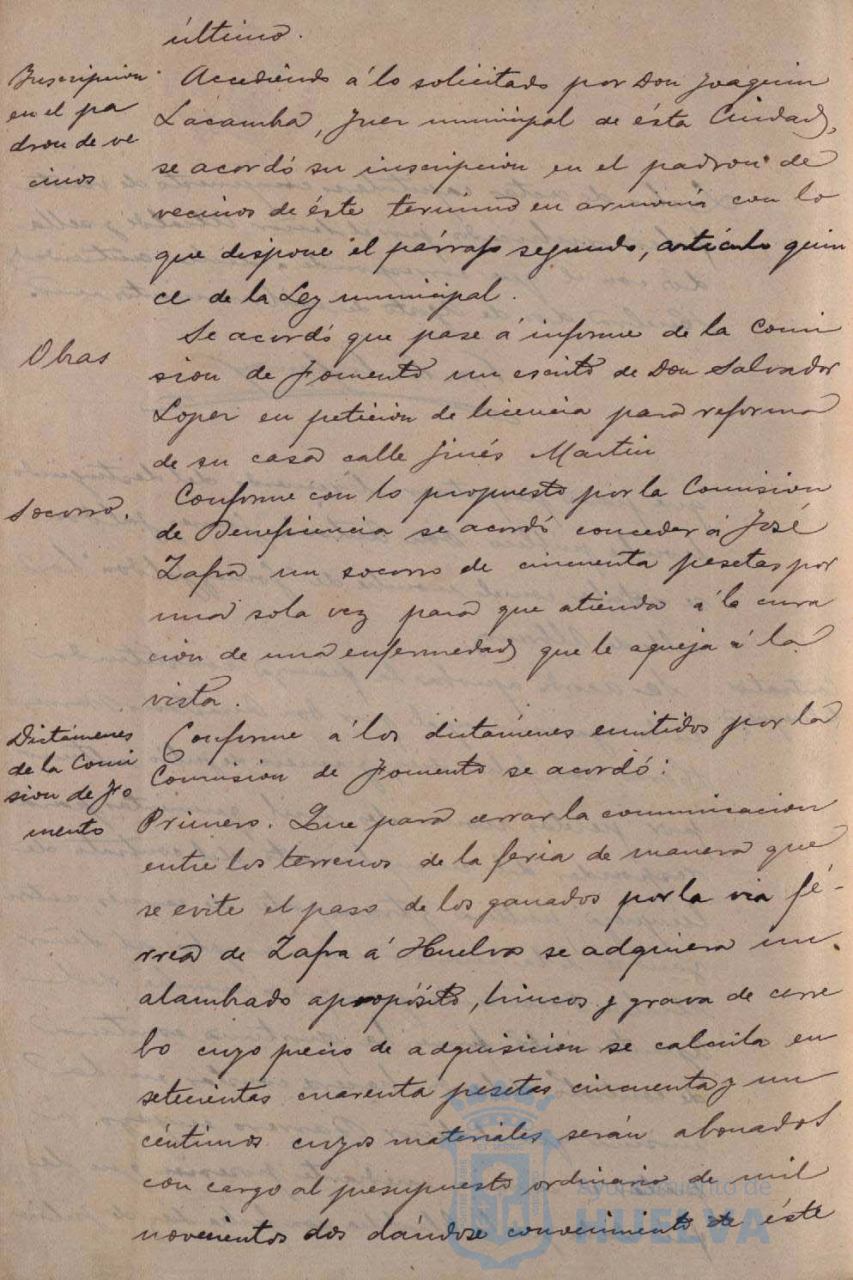 último.
Inscripcion
en el pa
dron de ve
cinos
Accediendo á lo solicitado por Don Joaquin
Lacamba, Juez municipal de ésta Ciudad,
se acordó su inscripcion en el padron de
vecinos de éste termino en armonía con lo
que dispone el párrafo segundo, artículo quin
ce de la Ley municipal.
Obras
Se acordó que pase á informe de la Comi
sion de Fomento un escrito de Don Salvador
Lopez en peticion de licencia para reforma
de su casa calle Jinés Martin
Socorro.
Conforme con lo propuesto por la Comision
de Beneficencia se acordó conceder á José
Zafra un socorro de cincuenta pesetas por
una sola vez para que atienda á la cura
cion de una enfermedad que le aqueja á la
vista.
Dictámenes
de la Comi
sion de Fo
mento
Conforme á los dictámenes emitidos por la
Comision de Fomento se acordó:
Primero. Que para cerrar la comunicacion
entre los terrenos de la feria de manera que
se evite el paso de los ganados por la via fé-
rrea de Zafra á Huelva se adquiera un
alambrado apropósito, hincos y grava de
bo cuyo precio de adquisicion se calcula en
setecientas cuarenta pesetas cincuenta y un
céntimos cuyos materiales serán abonados
con cargo al presupuesto ordinario de mil
novecientos dos dándose conocimiento de éste
Ayuntamiento de
HUELVA